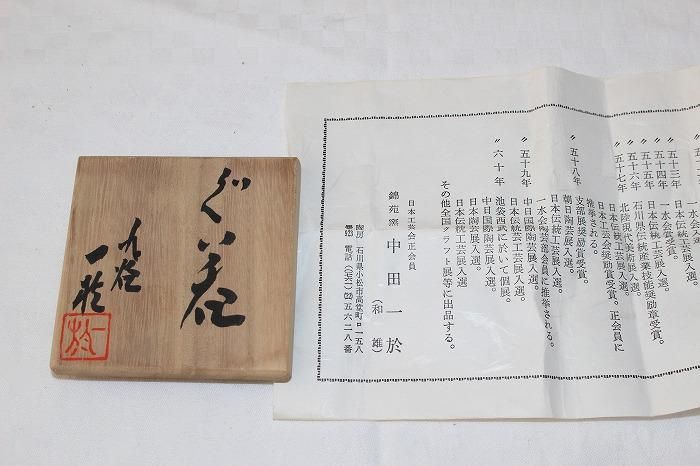 ぐい呑
九谷
一於
一於
五十三年
一水会展入選。
〃五十四年
一水会賞受賞。
〃五十五年
日本伝統工芸展入選。
〃五十六年
石川県伝統産業技能奨励章受賞。
〃五十七年
北陸現代美術展入選。
日本伝統工芸展入選。
日本工芸会奨励賞受賞。正会員に
推挙される。
〃五十八年
支部展奨励賞受賞。
朝日陶芸展入選。
日本伝統工芸展入選。
一水会陶芸部会員に推挙される。
中日国際陶芸展入選。
〃五十九年
日本伝統工芸展入選。
池袋西武に於いて個展。
〃六十年
中日国際陶芸展入選。
日本陶芸展入選。
日本伝統工芸展入選。
その他全国クラフト展等に出品する。
日本工芸会正会員
錦苑窯 中田一於
(和雄)
陶房 石川県小松市高堂町ロ一五八
☎923 電話(〇七六一)㉒五六二八番